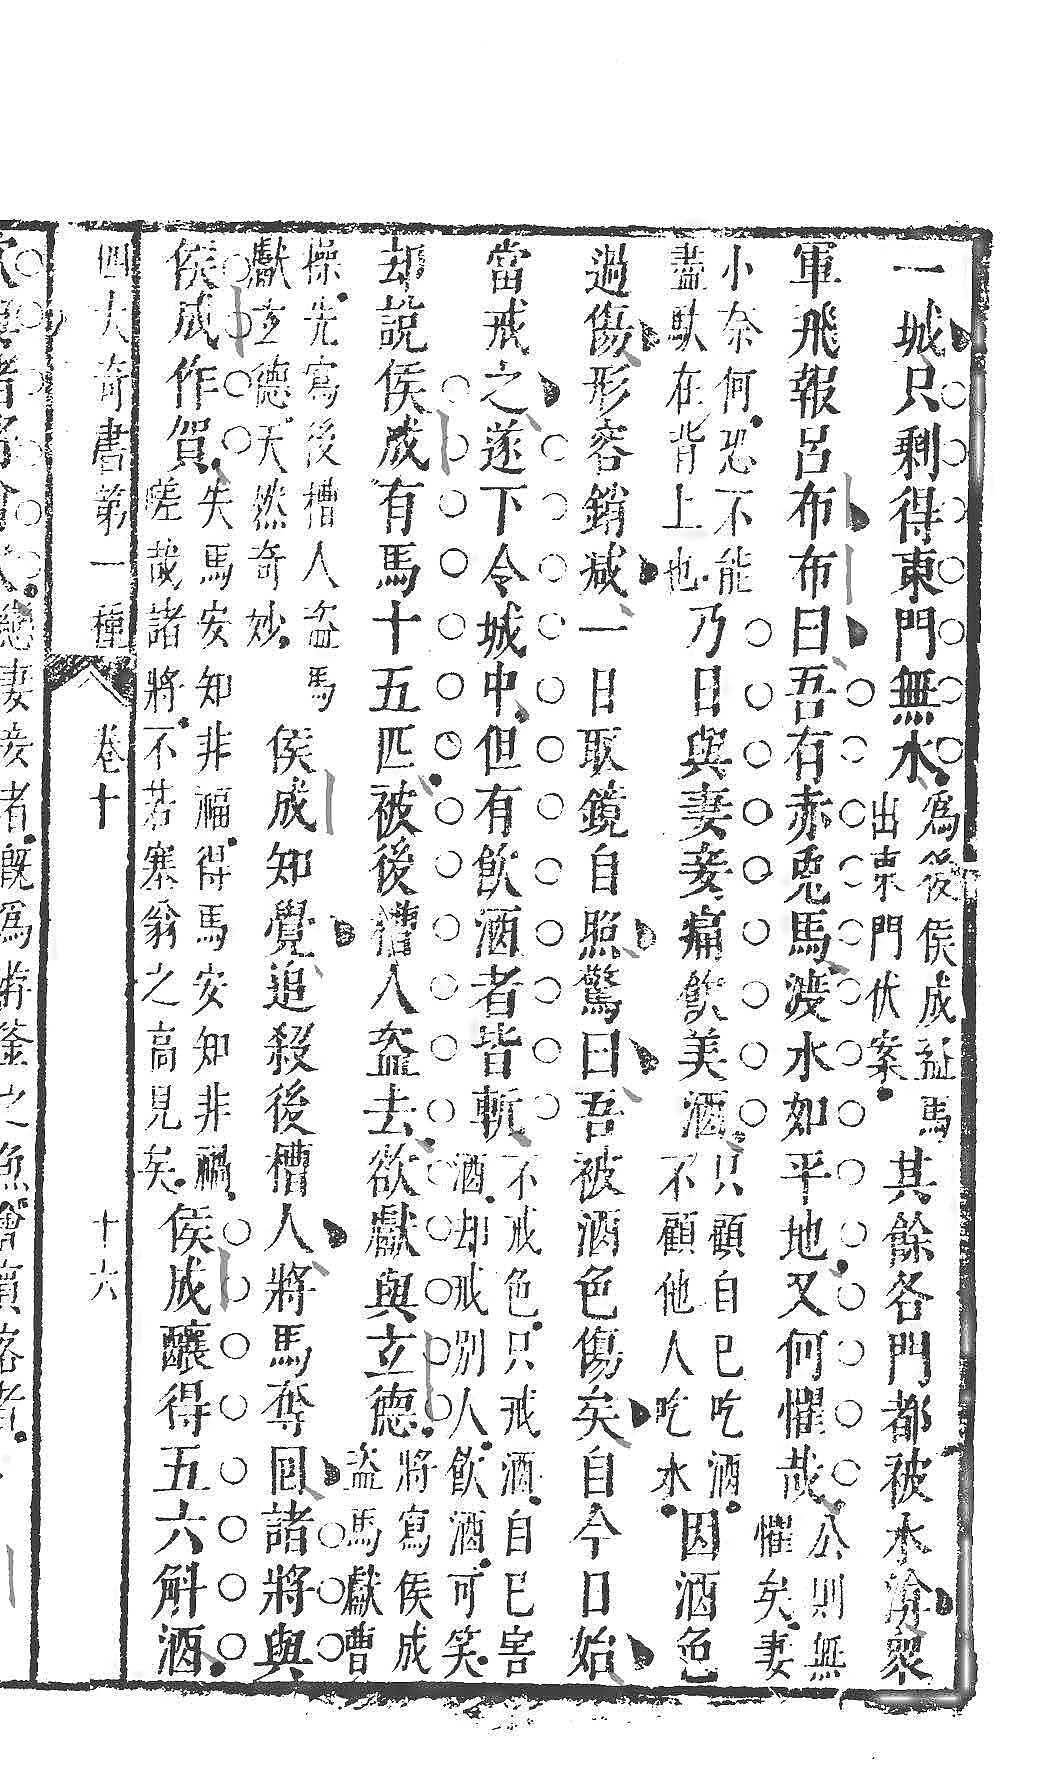 一城只剩得東門無水爲後侯成盜馬出東門伏案其餘各門都被水渰衆
軍飛報呂布布曰吾有赤兎馬渡水如平地又何懼哉公則無懼矣妻
小奈何恐不能盡馱在背上也乃日與妻妾痛飲美酒只顧自己吃酒不顧他人吃水因酒色
過傷形容銷减一日取鏡自照驚曰吾被酒色傷矣自今日始
當戒之遂下令城中但有飲酒者皆斬不戒色只戒酒自己害酒却戒別人飲酒可笑
却說侯成有馬十五匹被後槽人盜去欲獻與玄德將寫侯成盜馬獻曹
操先寫後槽人盜馬獻玄德天然奇妙侯成知覺追殺後槽人將馬奪回諸將與
侯成作賀失馬安知非福得馬安知非禍嗟哉諸將不若塞翁之高見矣侯成釀得五六斛酒
四大奇書第一種 卷十 十六
戀妻妾者既爲游釜之魚會賓客者